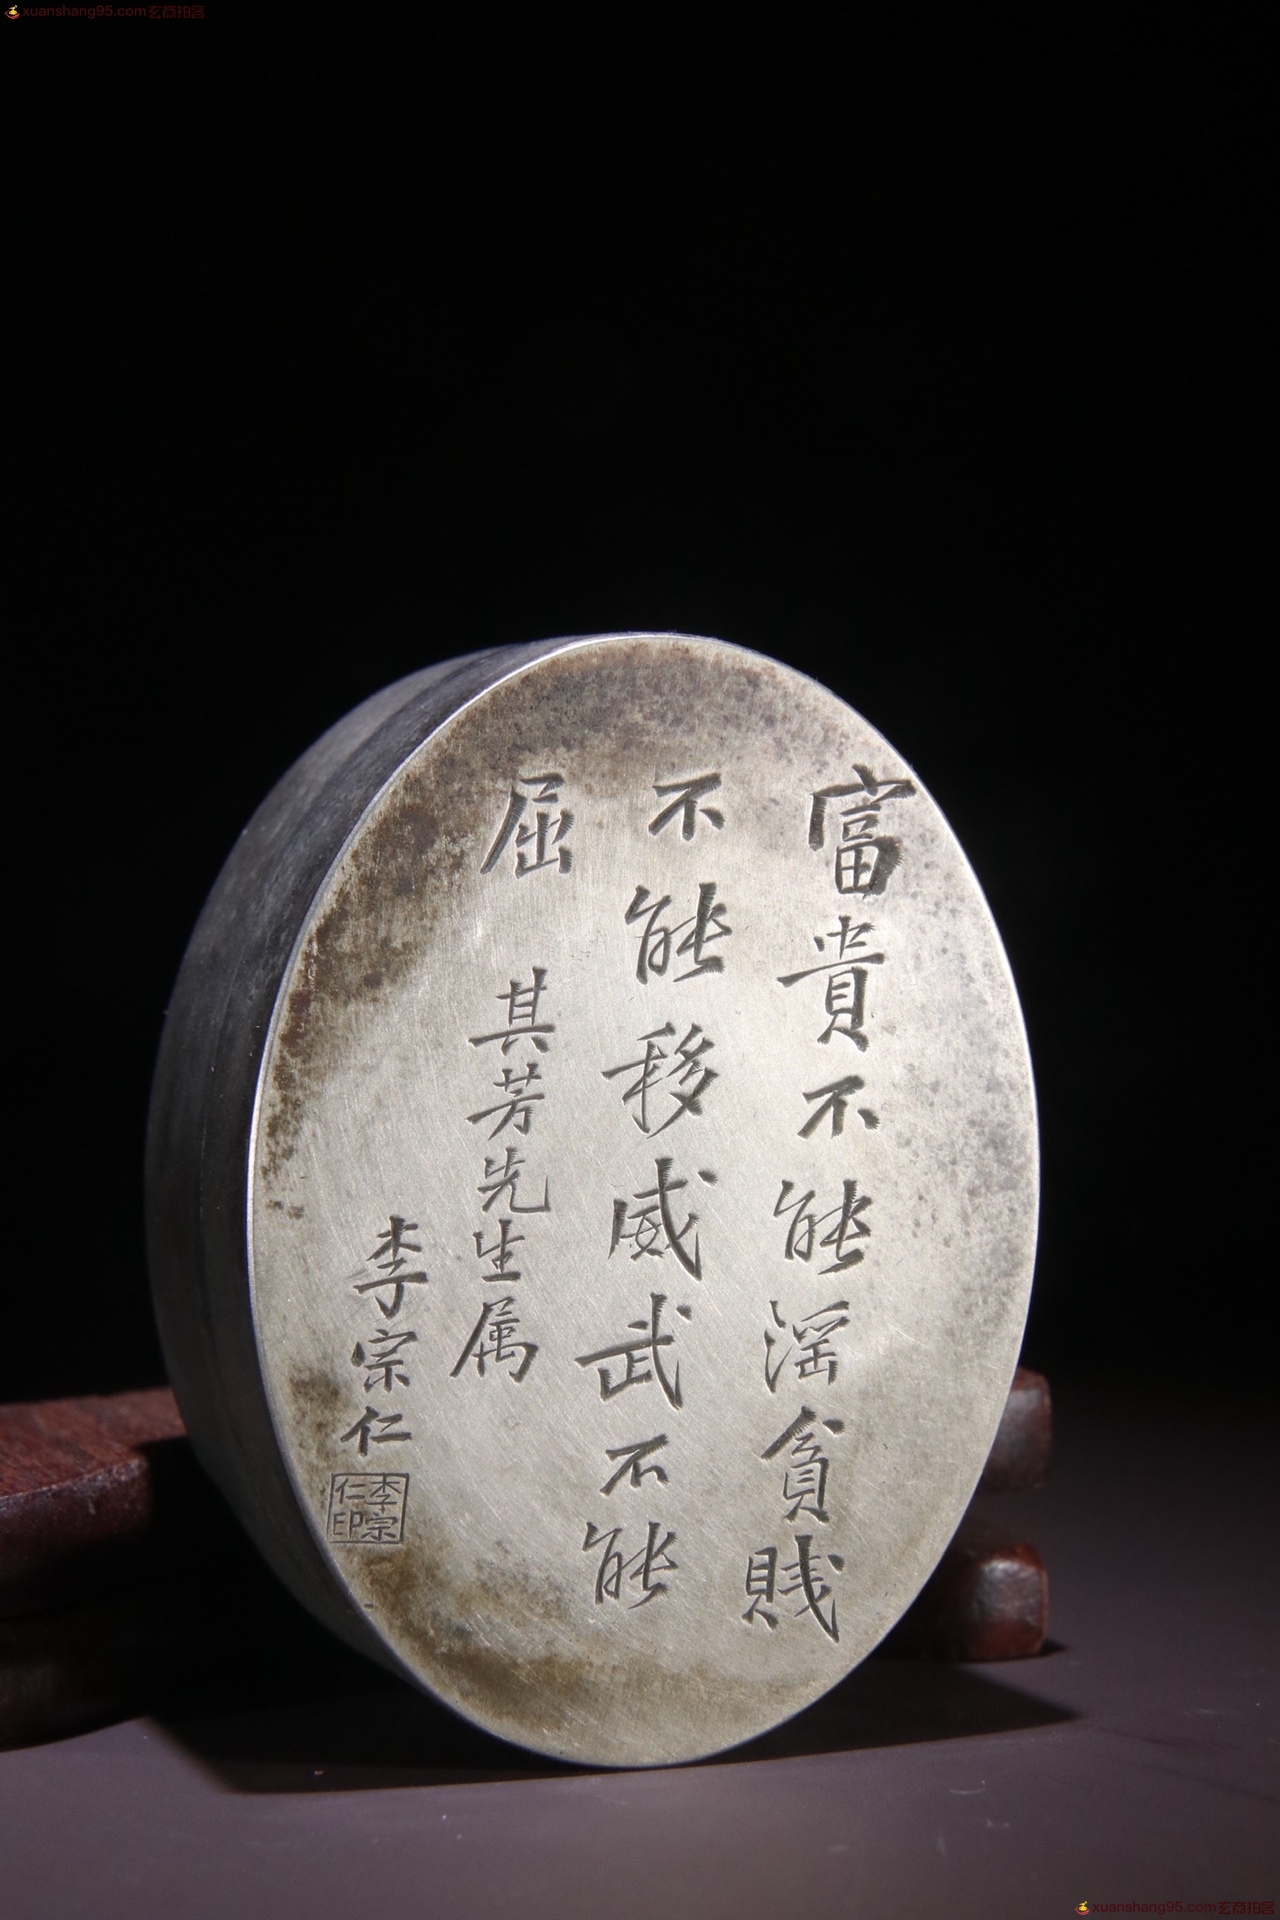 xuanshang95.com玄商拍客
富貴不能淫貧賤
不能移威武不能
屈
其芳先生属
李宗仁
李宗仁印
xuanshang95.com玄商拍客